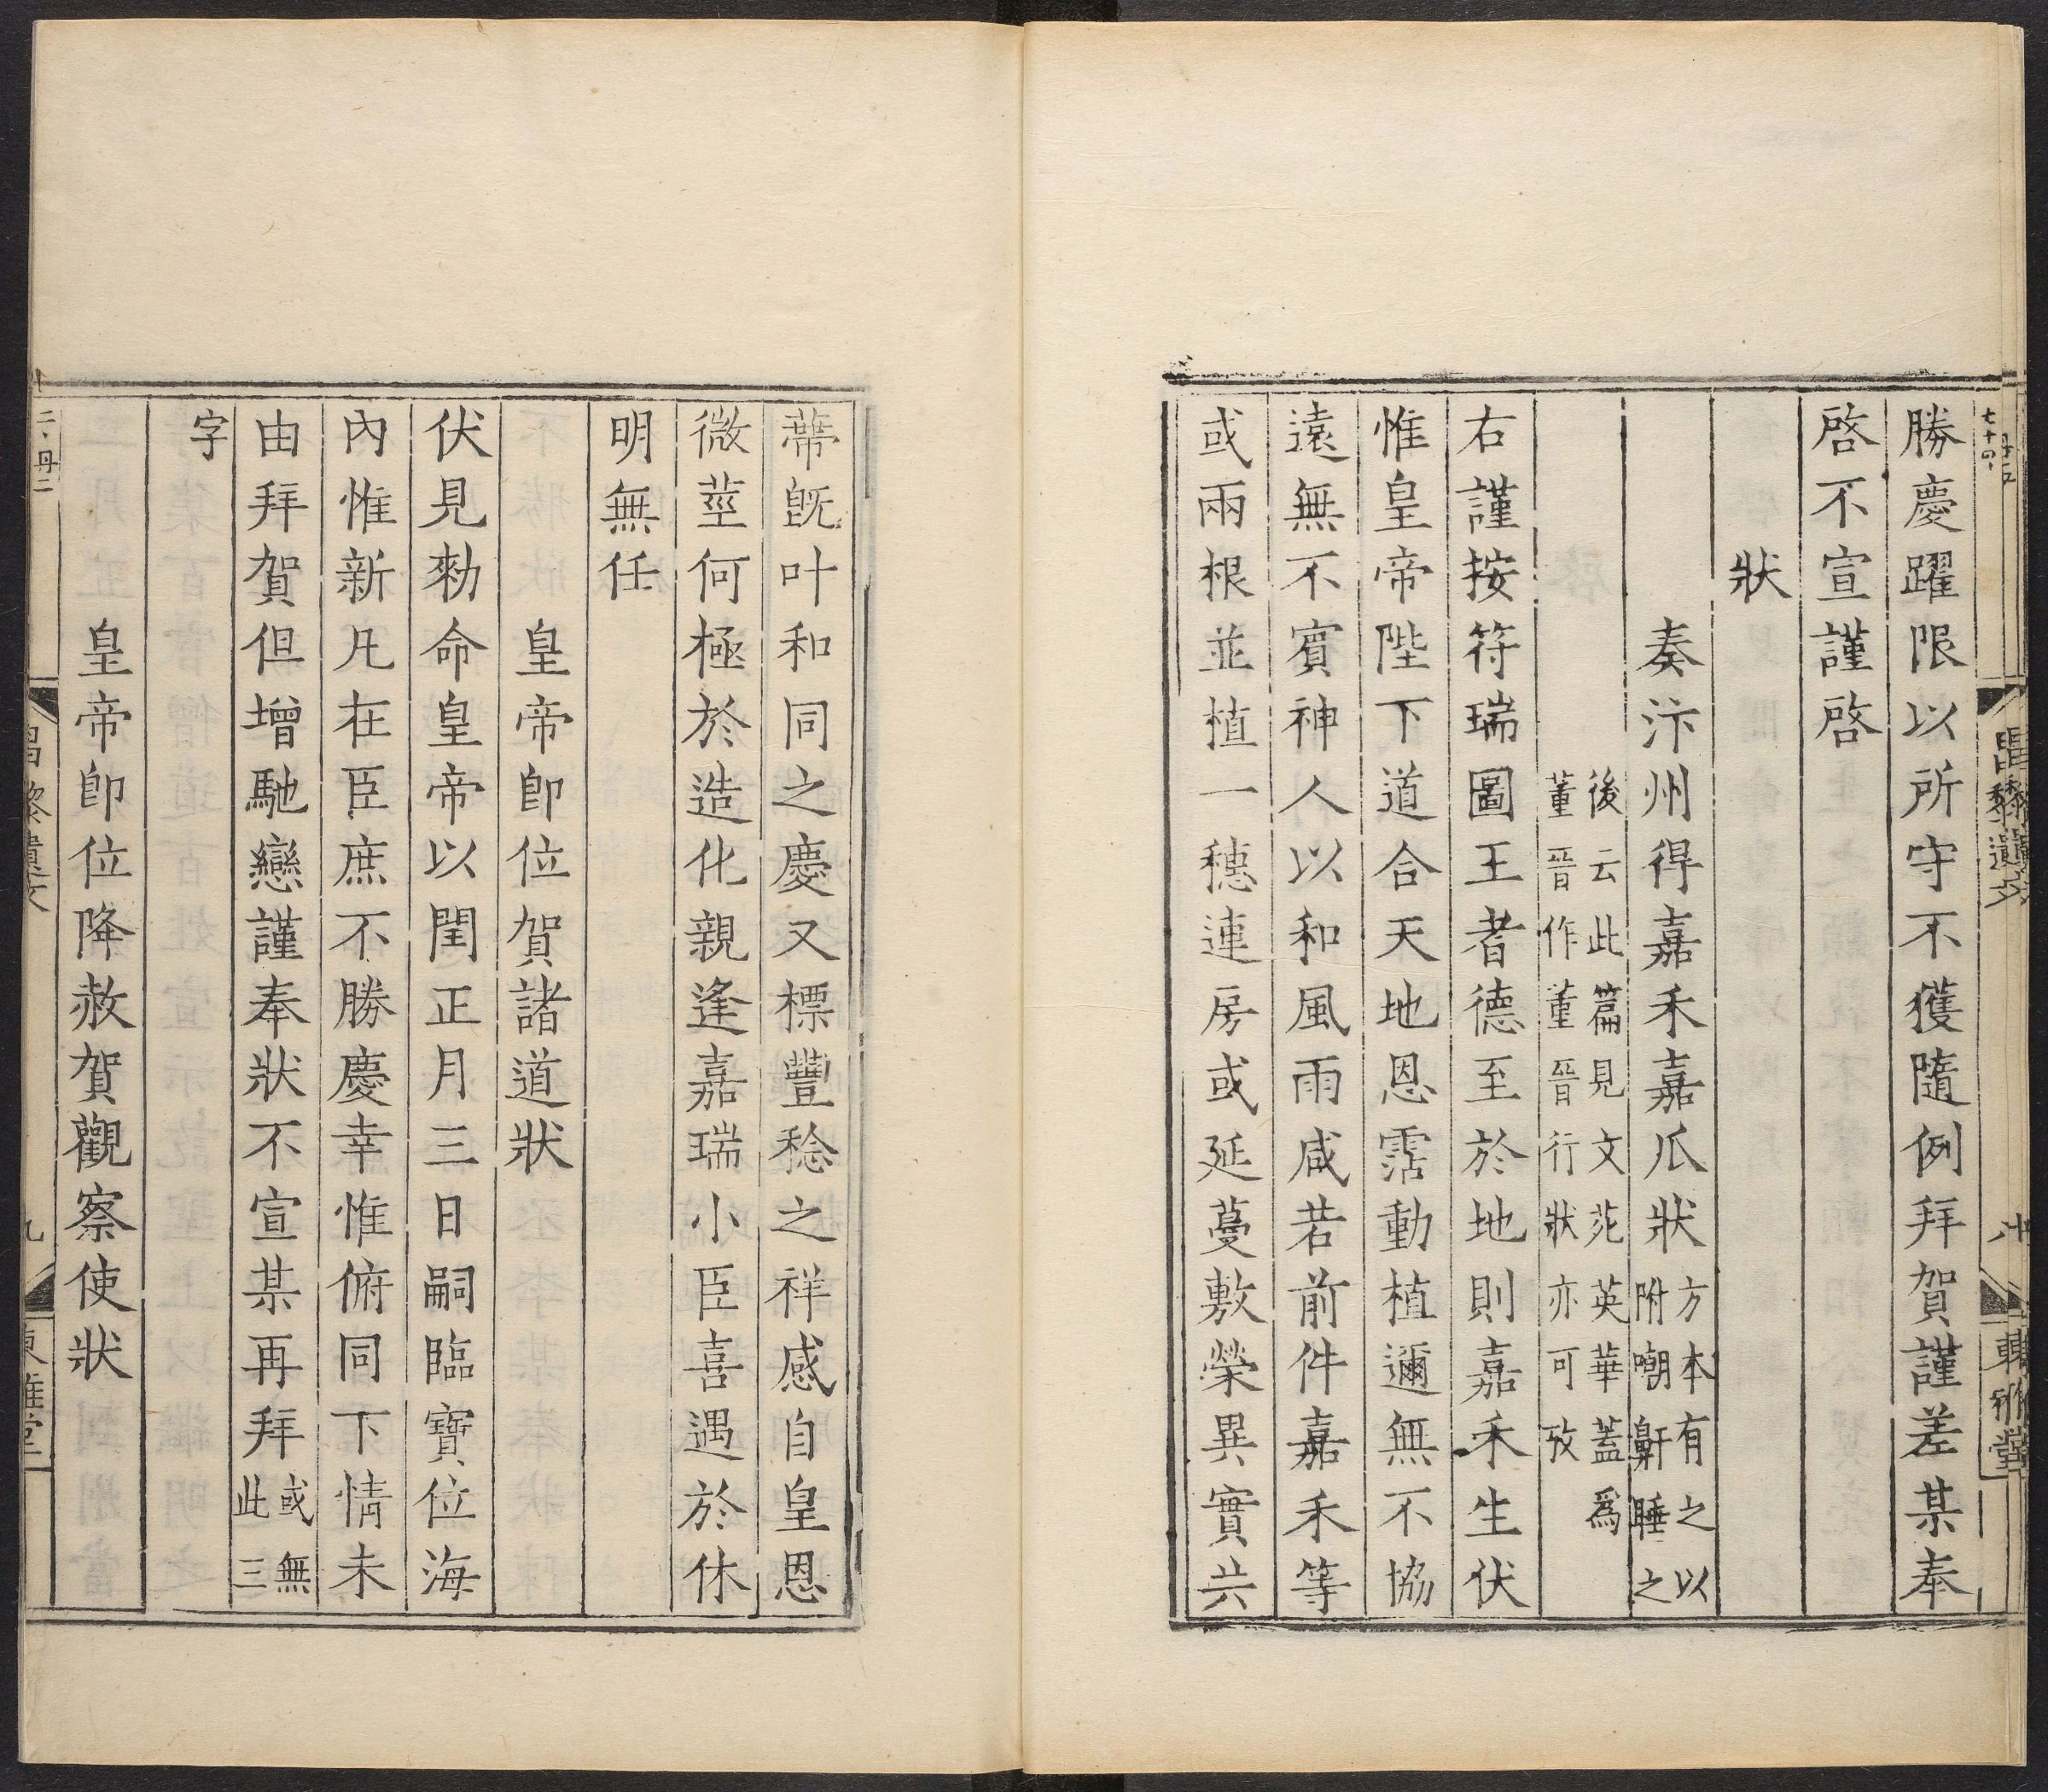 勝慶躍限以所守不獲隨例拜賀謹差某奉
啓不宣謹啓
狀
奏汴州得嘉禾嘉瓜狀方本有之以附嘲鼾睡之
後云此篇見文苑英華蓋爲董晉作董晉行狀亦可攷
右謹按符瑞圖王者德至於地則嘉禾生伏
惟皇帝陛下道合天地恩霑動植邇無不協
遠無不賓神人以和風雨咸若前件嘉禾等
或兩根並植一穗連房或延蔓敷榮異實共
蔕旣叶和同之慶又標豐稔之祥感自皇恩
微莖何極於造化親逢嘉瑞小臣喜遇於休
明無任
皇帝卽位賀諸道狀
伏見勑命皇帝以閏正月三日嗣臨寶位海
內惟新凡在臣庶不勝慶幸惟俯同下情未
由拜賀但增馳戀謹奉狀不宣某再拜或無此三
字
皇帝卽位降赦賀觀察使狀
昌黎遺文
九
東雅堂
昌黎遺文
八
東雅堂